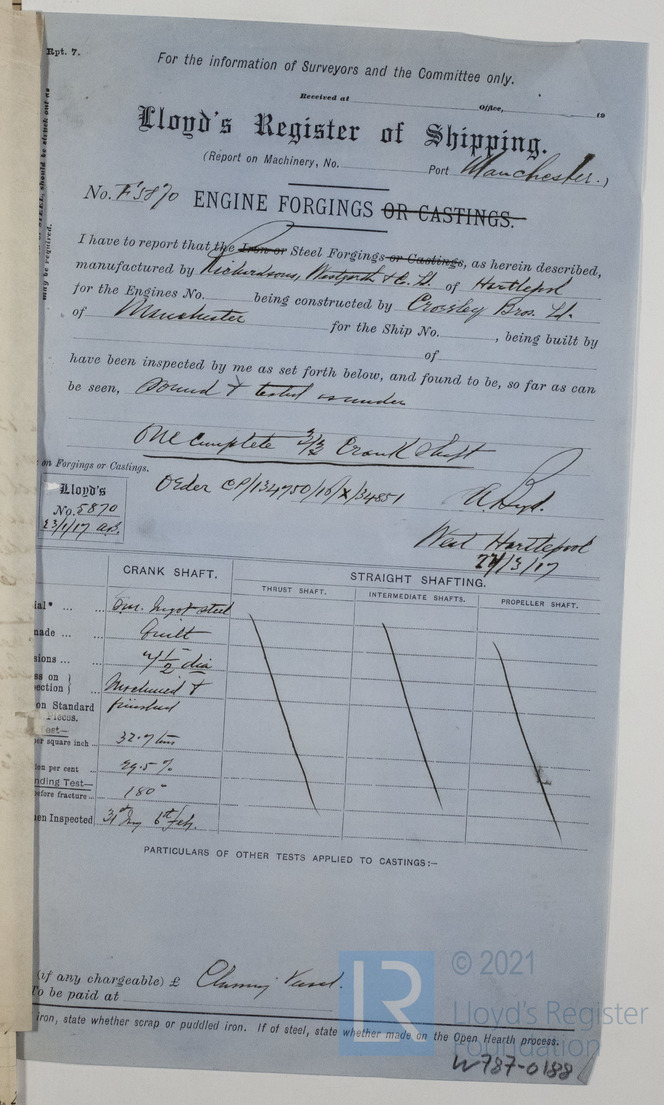 Rpt. 7.
For the information of Surveyors and the Committee only.
Received at Office, 19
Lloyd's Register of Shipping.
(Report on Machinery, No. Port Manchester.)
No. 5870 ENGINE FORGINGS OR CASTINGS.
I have to report that the Iron or Steel Forgings or Castings, as herein described,
manufactured by Richardsons, Westgarth & Co. Ld. of Hartlepool
for the Engines No. being constructed by Crossley Bros. Ld.
of Manchester for the Ship No. , being built by
of
have been inspected by me as set forth below, and found to be, so far as can
be seen, sound & tested as under
One complete Crank Shaft
on Forgings or Castings.
Order CP/134750/16/X/34851
Lloyd's
No. 5870
23/1/17
West Hartlepool
CRANK SHAFT. STRAIGHT SHAFTING.
THRUST SHAFT. INTERMEDIATE SHAFTS. PROPELLER SHAFT.
ial* ... ... ingot steel
made ... ... Built
sions ... ... dia
ss on }
ection } ... Machined &
on Standard finished
Pieces.
est—
per square inch ... 32.7 tons
ion per cent ... 29.5 %
nding Test—
before fracture ... 180°
en Inspected 31st 6th Feb.
PARTICULARS OF OTHER TESTS APPLIED TO CASTINGS:—
(if any chargeable) £
To be paid at
iron, state whether scrap or puddled iron. If of steel, state whether made on the Open Hearth process.
© 2021
LR
Lloyd's Register
Foundation
W787-0188
STEEL, should be struck out as
may be required.